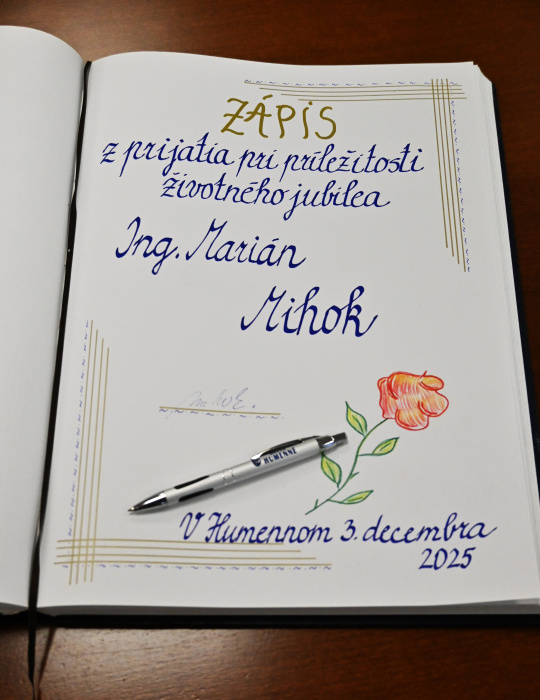 ZÁPIS
z prijatia pri príležitosti
životného jubilea
Ing. Marián
Mihok
HUMENNÉ
V Humennom 3. decembra
2025